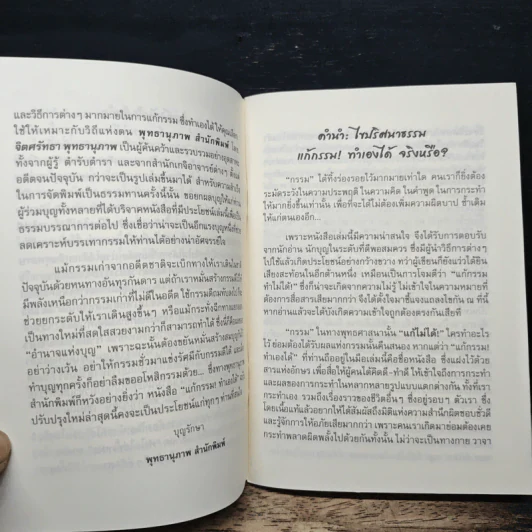 และวิธีการต่างๆ มากมายในการแก้กรรม ซึ่งทำเองได้ ให้คุณเลือก
ใช้ให้เหมาะกับวิถีแห่งตน พุทธานุภาพ สำนักพิมพ์ โดย
จิตศรัทธา พุทธานุภาพ เป็นผู้ค้นคว้าและรวบรวมอย่างอุตสาหะ
ทั้งจากผู้รู้ ตำรับตำรา และจากสำนักเกจิอาจารย์ต่างๆ ตั้งแต่
อดีตจนปัจจุบัน กว่าจะเป็นรูปเล่มขึ้นมาได้ สำหรับความสำเร็จ
ในการจัดพิมพ์เป็นธรรมทานครั้งนี้นั้น ขอยกผลบุญให้แก่ท่าน
ผู้ร่วมบุญทั้งหลายที่ได้บริจาคหนังสือที่มีประโยชน์เล่มนี้เพื่อเป็น
ธรรมบรรณาการต่อไป ซึ่งเชื่อว่าน่าจะเป็นอีกแรงบุญหนึ่งที่ช่วย
ลดเคราะห์บรรเทากรรมให้ท่านได้อย่างน่าอัศจรรย์ใจ
แม้กรรมเก่าจากอดีตชาติจะเบิกทางให้เราเดินในชาติ
ปัจจุบันด้วยหนทางอันทุรกันดาร แต่ถ้าเราหมั่นสร้างกรรมดีให้
มีพลังเหนือกว่ากรรมเก่าที่ไม่ดีในอดีต ใช้กรรมดีถมทับลงไป
ช่วยยกระดับให้เราเดินสูงขึ้นๆ หรือแม้กระทั่งฉีกทางออก
เป็นทางใหม่ที่สดใสสวยงามกว่าก็สามารถทำได้ ซึ่งนี่ก็คือ
"อำนาจแห่งบุญ" เพราะฉะนั้นต้องขยันหมั่นสร้างสมบุญ
อย่าว่างเว้น อย่าให้กรรมชั่วมาแซงรัศมีกับกรรมดีได้ และ
ทำบุญทุกครั้งก็อย่าลืมขออโหสิกรรมด้วย... ซึ่งทางพุทธานุภาพ
สำนักพิมพ์ก็หวังอย่างยิ่งว่า หนังสือ "แก้กรรม! ทำเองได้" ฉบับ
ปรับปรุงใหม่ล่าสุดนี้คงจะเป็นประโยชน์แก่ทุกๆ ท่านที่สนใจ
บุญรักษา
พุทธานุภาพ สำนักพิมพ์
คำนำ: ไขปริศนาธรรม
แก้กรรม! ทำเองได้ จริงหรือ?
"กรรม" ได้ทิ้งร่องรอยไว้มากมายเท่าใด คนเราก็ยิ่งต้อง
ระมัดระวังในความประพฤติ ในความคิด ในคำพูด ในการกระทำ
ให้มากยิ่งขึ้นเท่านั้น เพื่อที่จะได้ไม่ต้องเพิ่มความผิดบาป ซ้ำเติม
ให้แก่ตนเองอีก...
เพราะหนังสือเล่มนี้มีความน่าสนใจ จึงได้รับการตอบรับ
จากนักอ่าน นักบุญในระดับที่ดีพอสมควร ซึ่งมีผู้นำวิธีการต่างๆ
ไปใช้แล้วเกิดประโยชน์อย่างกว้างขวาง ทว่าผู้เขียนก็ยังแว่วได้ยิน
เสียงสะท้อนในอีกด้านหนึ่ง เหมือนเป็นการโจมตีว่า "แก้กรรม
ทำไม่ได้!" ซึ่งก็น่าจะเกิดจากความไม่รู้ ไม่เข้าใจในความหมายที่
ต้องการสื่อสารเสียมากกว่า จึงได้ตั้งใจมาชี้แจงแถลงไขกัน ณ ที่นี้
หากอ่านแล้วจะได้บังเกิดความเข้าใจถูกต้องตรงกันเสียที
"กรรม" ในทางพุทธศาสนานั้น "แก้ไม่ได้!" ใครทำอะไร
ไว้ ย่อมต้องได้รับผลแห่งกรรมนั้นคืนสนอง หากแต่ว่า "แก้กรรม!
ทำเองได้" ที่ท่านถืออยู่ในมือเล่มนี้คือชื่อหนังสือ ซึ่งแฝงไว้ด้วย
สารแห่งอักษร เพื่อสื่อให้ผู้คนได้คิดดี-ทำดี ให้เข้าใจถึงการกระทำ
และผลของการกระทำในหลากหลายรูปแบบแตกต่างกัน ทั้งที่เรา
กระทำเอง รวมถึงเรื่องราวของชีวิตอื่นๆ ซึ่งอยู่รอบๆ ตัวเรา ซึ่ง
โดยเนื้อแท้แล้วอยากให้ได้สัมผัสถึงมิติแห่งความสำนึกผิดชอบชั่วดี
และรู้จักการให้อภัยเสียมากกว่า เพราะคนเราเกิดมาย่อมต้องเคย
กระทำพลาดผิดพลั้งไปด้วยกันทั้งนั้น ไม่ว่าจะเป็นทางกาย วาจา